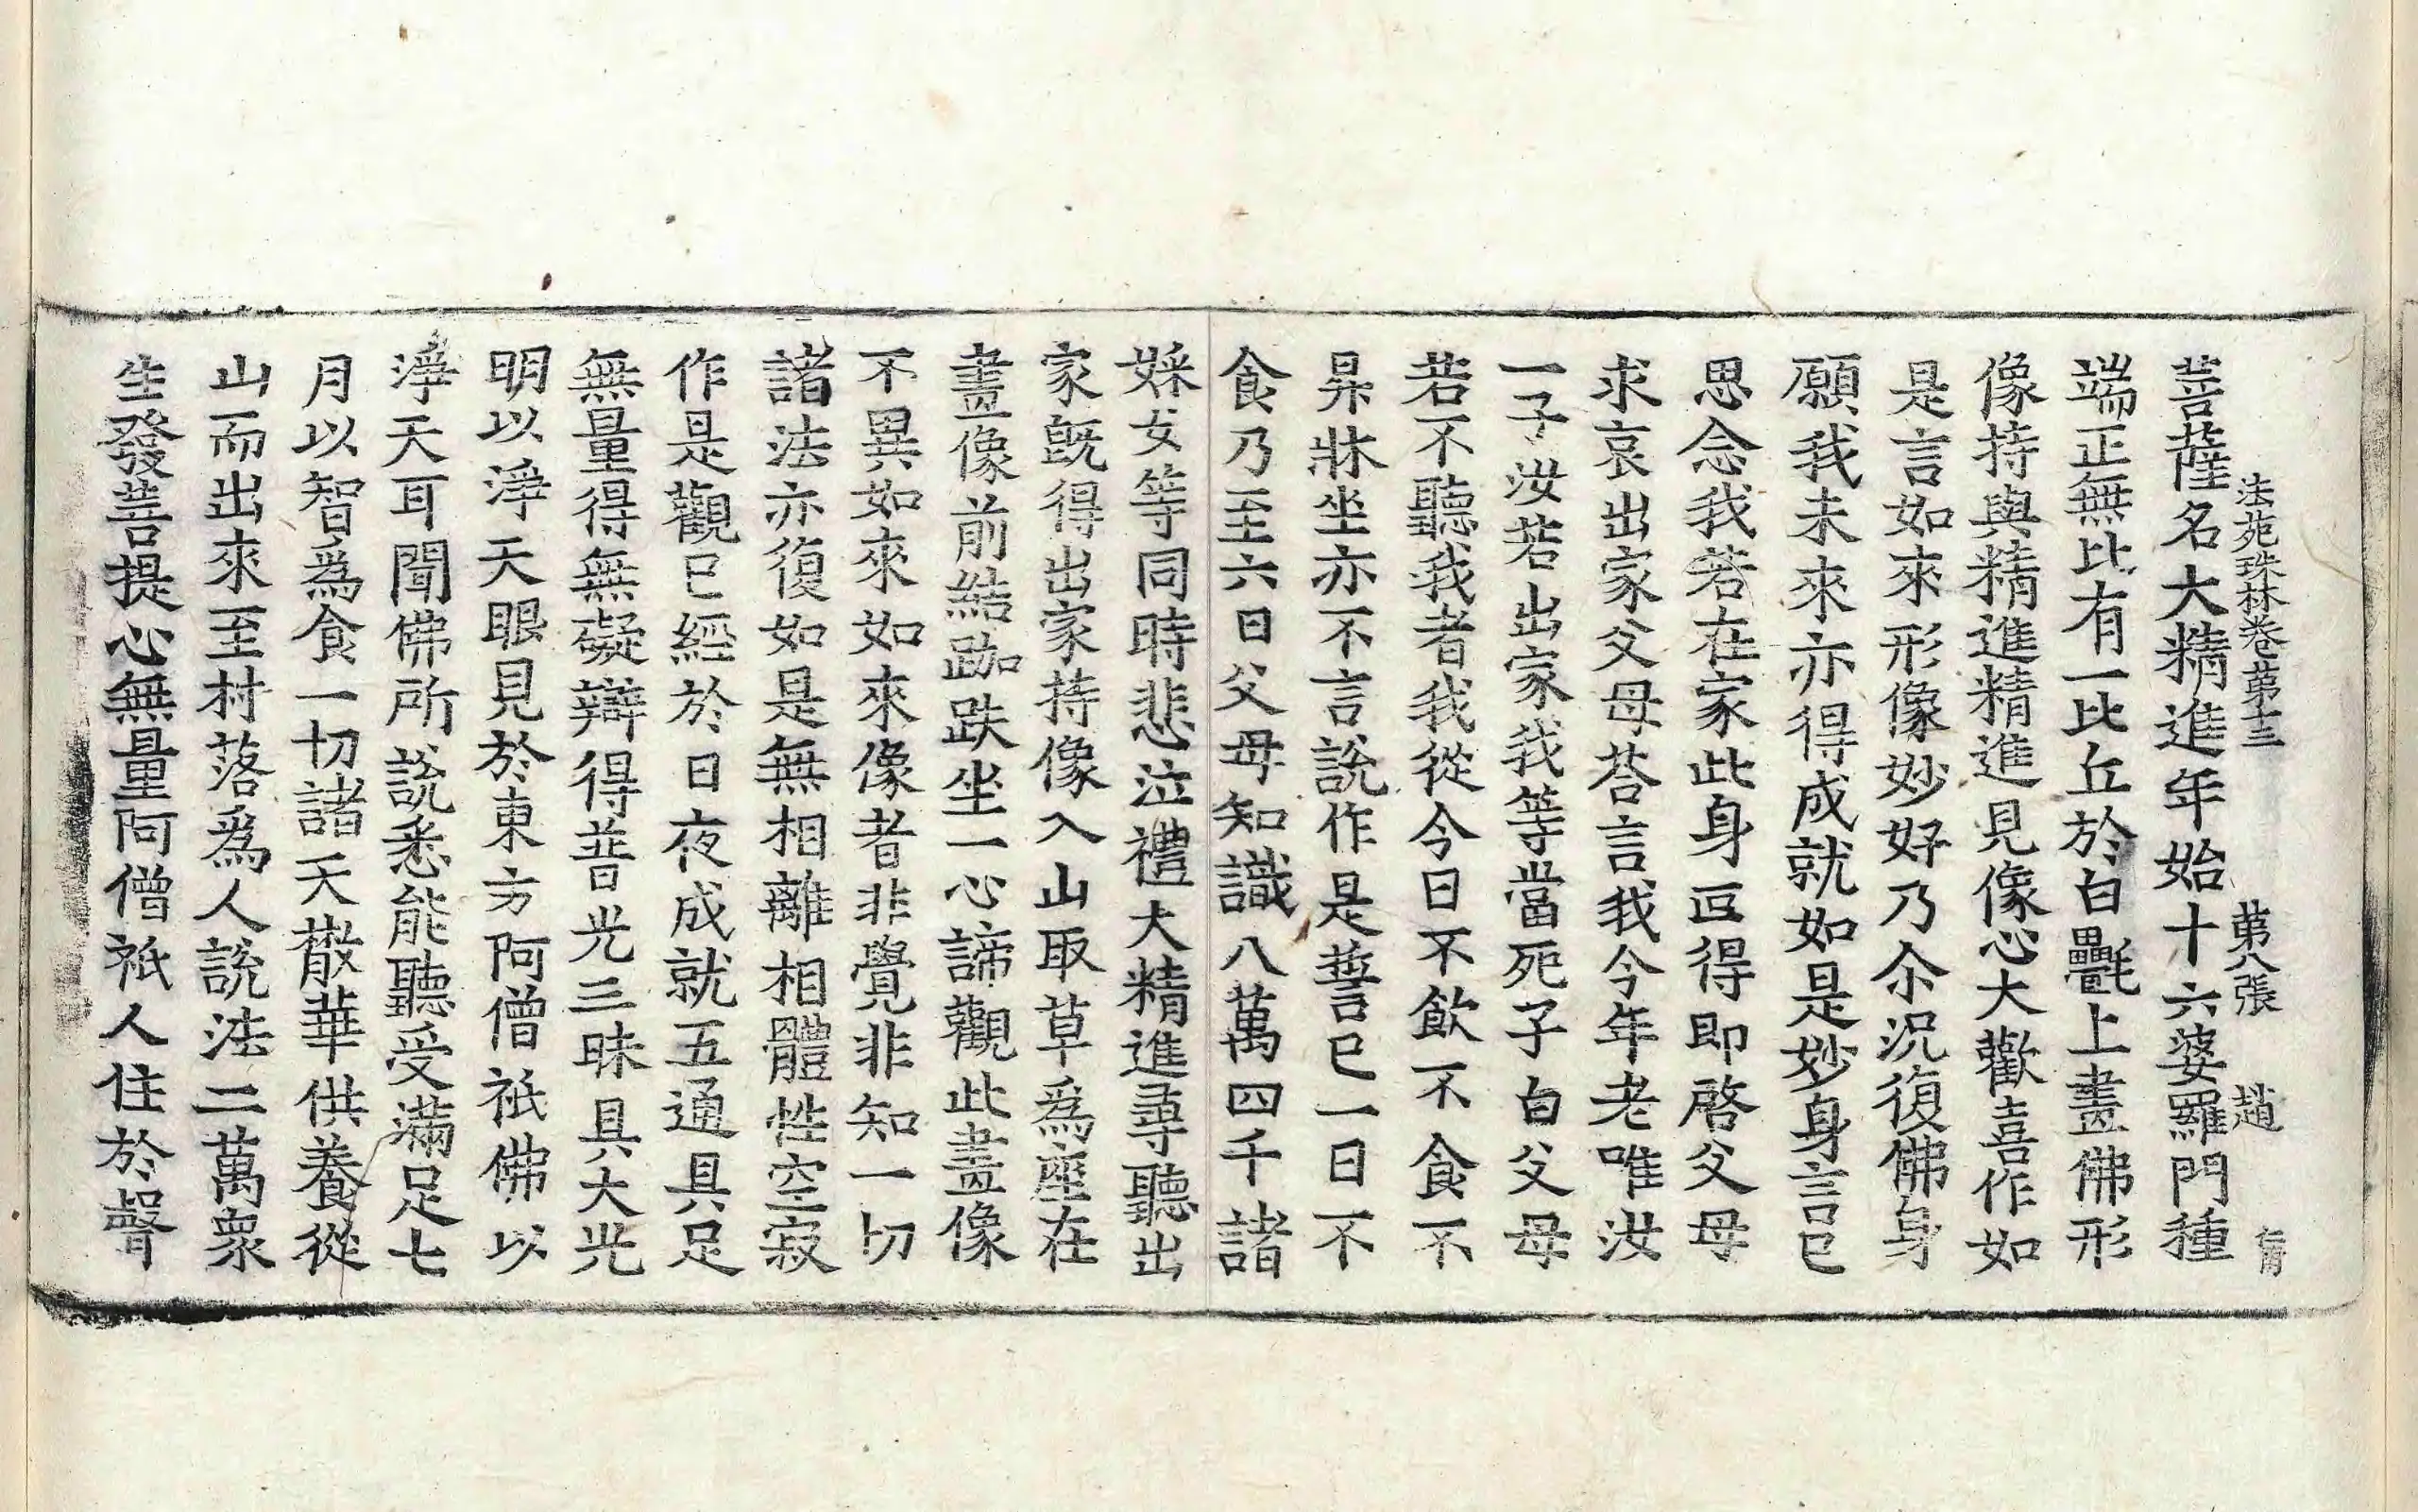 法苑珠林卷第十三　第八張　趙　仁甫
菩薩名大精進年始十六婆羅門種
端正無比有一比丘於白㲲上畫佛形
像持與精進精進見像心大歡喜作如
是言如來形像妙好乃尒況復佛身
願我未來亦得成就如是妙身言已
思念我若在家此身叵得即啓父母
求哀出家父母荅言我今年老唯汝
一子汝若出家我等當死子白父母
若不聽我者我從今日不飲不食不
昇牀坐亦不言說作是誓已一日不
食乃至六日父母知識八萬四千諸
婇女等同時悲泣禮大精進尋聽出
家旣得出家持像入山取草爲座在
畫像前結跏趺坐一心諦觀此畫像
不異如來如來像者非覺非知一切
諸法亦復如是無相離相體性空寂
作是觀已經於日夜成就五通具足
無量得無礙辯得普光三昧具大光
明以淨天眼見於東方阿僧祇佛以
淨天耳聞佛所說悉能聽受滿足七
月以智爲食一切諸天散華供養從
山而出來至村落爲人說法二萬衆
生發菩提心無量阿僧祇人住於聲